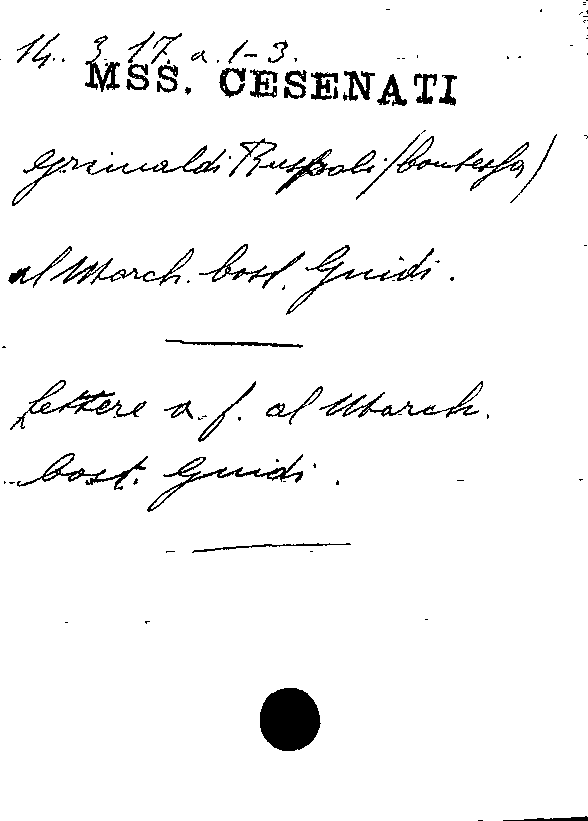 14. 3. 17. a. 1-3.
MSS. CESENATI
Grimaldi Ruspoli (Contessa)
al March. Cost. Guidi.
Lettere a. f. al March.
Cost. Guidi.